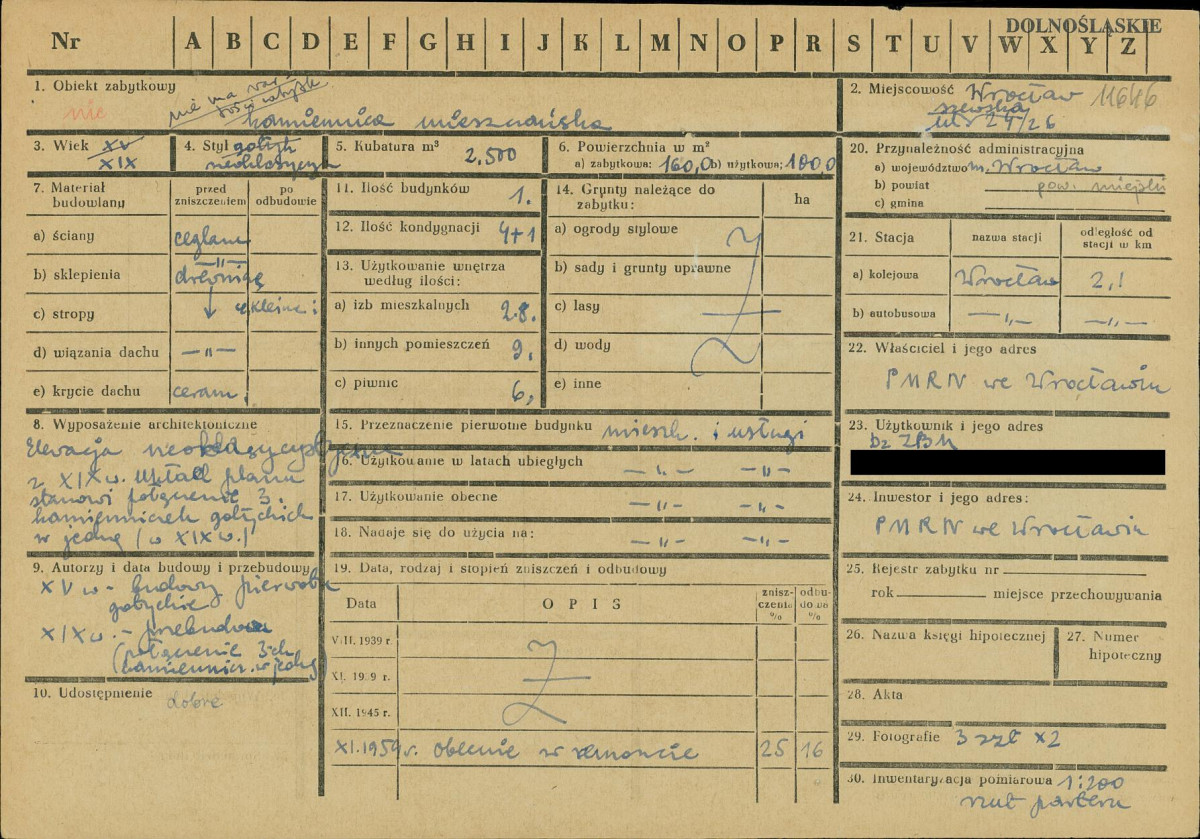 DOLNOŚLĄSKIE
Nr A B C D E F G H I J K L M N O P R S T U V W X Y Z
1. Obiekt zabytkowy
nie
nie ma
kamiennica mieszczańska
2. Miejscowość Wrocław 11646
szewska
ul. 24/26
3. Wiek XV
XIX
4. Styl gotyk
neoklasycyzm
5. Kubatura m³
2.500
6. Powierzchnia w m²
a) zabytkowa: 160,0 b) użytkowa: 180,0
20. Przynależność administracyjna
a) województwo m. Wrocław
b) powiat pow. miejski
c) gmina
7. Materiał budowlany
przed zniszczeniem
po odbudowie
a) ściany ceglane
b) sklepienia —„—
drewniane
c) stropy Kleina
d) wiązania dachu —„—
e) krycie dachu ceram.
11. Ilość budynków 1.
12. Ilość kondygnacji 4+1
13. Użytkowanie wnętrza
według ilości:
a) izb mieszkalnych 28.
b) innych pomieszczeń 9.
c) piwnic 6,
14. Grunty należące do
zabytku:
ha
a) ogrody stylowe
b) sady i grunty uprawne
c) lasy
d) wody
e) inne
21. Stacja
nazwa stacji
odległość od
stacji w km
a) kolejowa Wrocław 2,1
b) autobusowa —„— —„—
22. Właściciel i jego adres
PMRN we Wrocławiu
8. Wyposażenie architektoniczne
Elewacja neoklasycystyczna
z XIX w. Układ planu
stanowi połączenie 3.
kamienniczek gotyckich
w jedną (w XIX w.)
15. Przeznaczenie pierwotne budynku mieszk. i usługi
16. Użytkowanie w latach ubiegłych —„— —„—
17. Użytkowanie obecne —„— —„—
18. Nadaje się do użycia na: —„— —„—
23. Użytkownik i jego adres
ZBM
24. Inwestor i jego adres:
PMRN we Wrocławiu
9. Autorzy i data budowy i przebudowy
XV w - budowy pierwotne
gotyckie
XIX w. - przebudowa
(połączenie 3-ch
kamiennic w jedną)
10. Udostępnienie dobre
19. Data, rodzaj i stopień zniszczeń i odbudowy
Data
OPIS
znisz-
czenia
%
odbu-
dowa
%
VIII. 1939 r.
XI. 1939 r.
XII. 1945 r.
XI. 1959 r. obecnie w remoncie 25 16
25. Rejestr zabytku nr
rok miejsce przechowywania
26. Nazwa księgi hipotecznej
27. Numer
hipoteczny
28. Akta
29. Fotografie 3 szt x2
30. Inwentaryzacja pomiarowa 1:200
rzut parteru